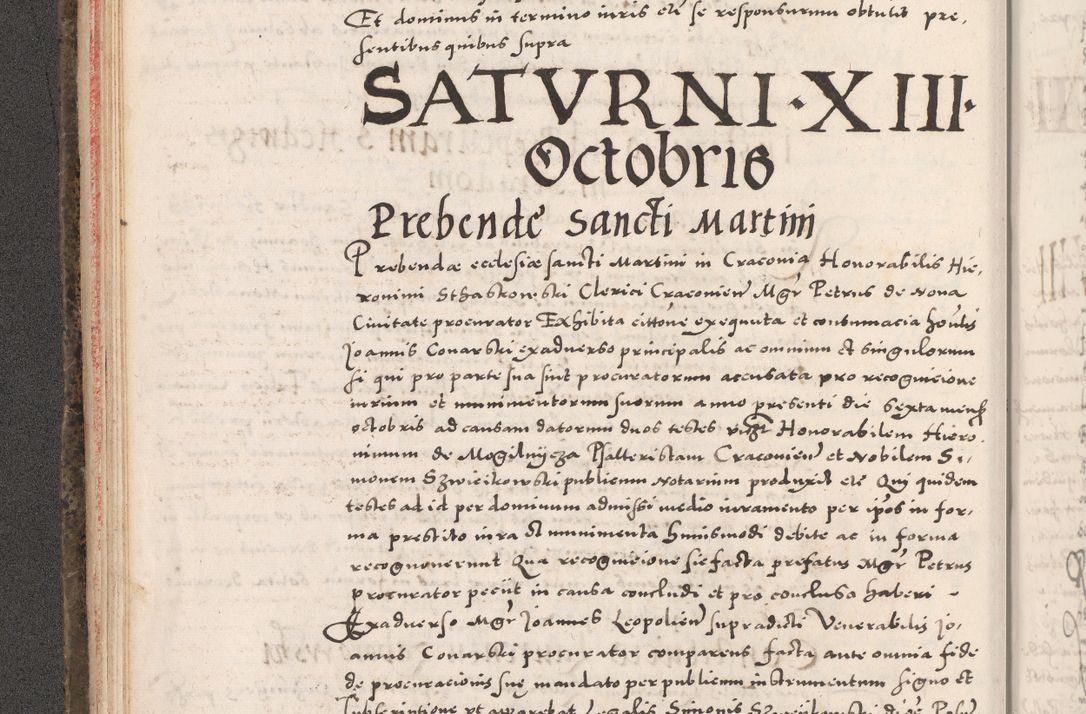 Et dominus in termino iuris etc se responsurum obtulit pre,
sentibus quibus supra
SATVRNI · XIII ·
Octobris
Prebendę Sancti Martini
Prebendæ ecclesiæ sancti Martini in Cracovia Honorabilis Hie,
ronimi Sthaskowski Clerici Cracovien Mgr Petrus de Nova
Civitate procurator Exhibita citione exequuta et contumacia honlis
Joannis Conarski exadverso principalis ac omnium et singulorum
si qui pro parte sua sint procuratorum accusata pro recognicione
iurium et munimentorum suorum anno presenti die Sexta mensis
octobris ad causam datorum duos testes vizt Honorabilem Hiero,
nimum de Mogilnycza Psalteristam Cracovien et Nobilem Si,
monem Szwieikowski publicum Notarium produxit etc Qui quidem
testes ad id per dominum admissi medio iuramento per ipsos in for,
ma prestito iura et munimenta huiusmodi debite ac in forma
recognoverunt Qua recognicione sic facta prefatus Mgr Petrus
procurator peciit in causa concludi et pro conclusa haberi -
Exadverso Mgr Joannes Leopolien supradicti Venerabilis Jo,
annis Conarski procurator comparens facta ante omnia fide
de procuracionis suę mandato per publicum instrumentum signo et
subscriptione ut apparebat Legalis Simonis Szwieikowski